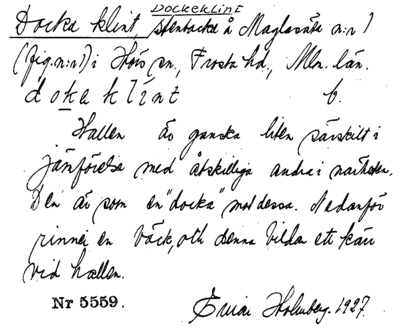 Dockeklint
Docka klint, stenbacke å Maglasäte n:r 1
(fig. n:r 1) i Hörs sn, Frosta hd, Mlm. län.
doka klint 6.
Hallen är ganska liten särskilt i
jämförelse med åtskilliga andra i närheten.
Den är som en "docka" mot dessa. Nedanför
rinner en bäck, och denna bildar ett kärr
vid hallen.
Nr 5559. Einar Holmberg. 1927.